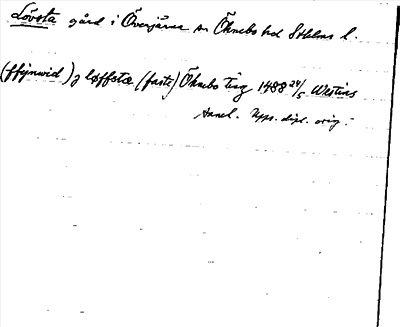 Lövsta gård i Överjärna sn Öknebo hd Sthlms l.
(ffijnwid) j løffstæ (faste) Öknebo ting 1488 24/5 Westins
saml. Upps. dipl. orig.